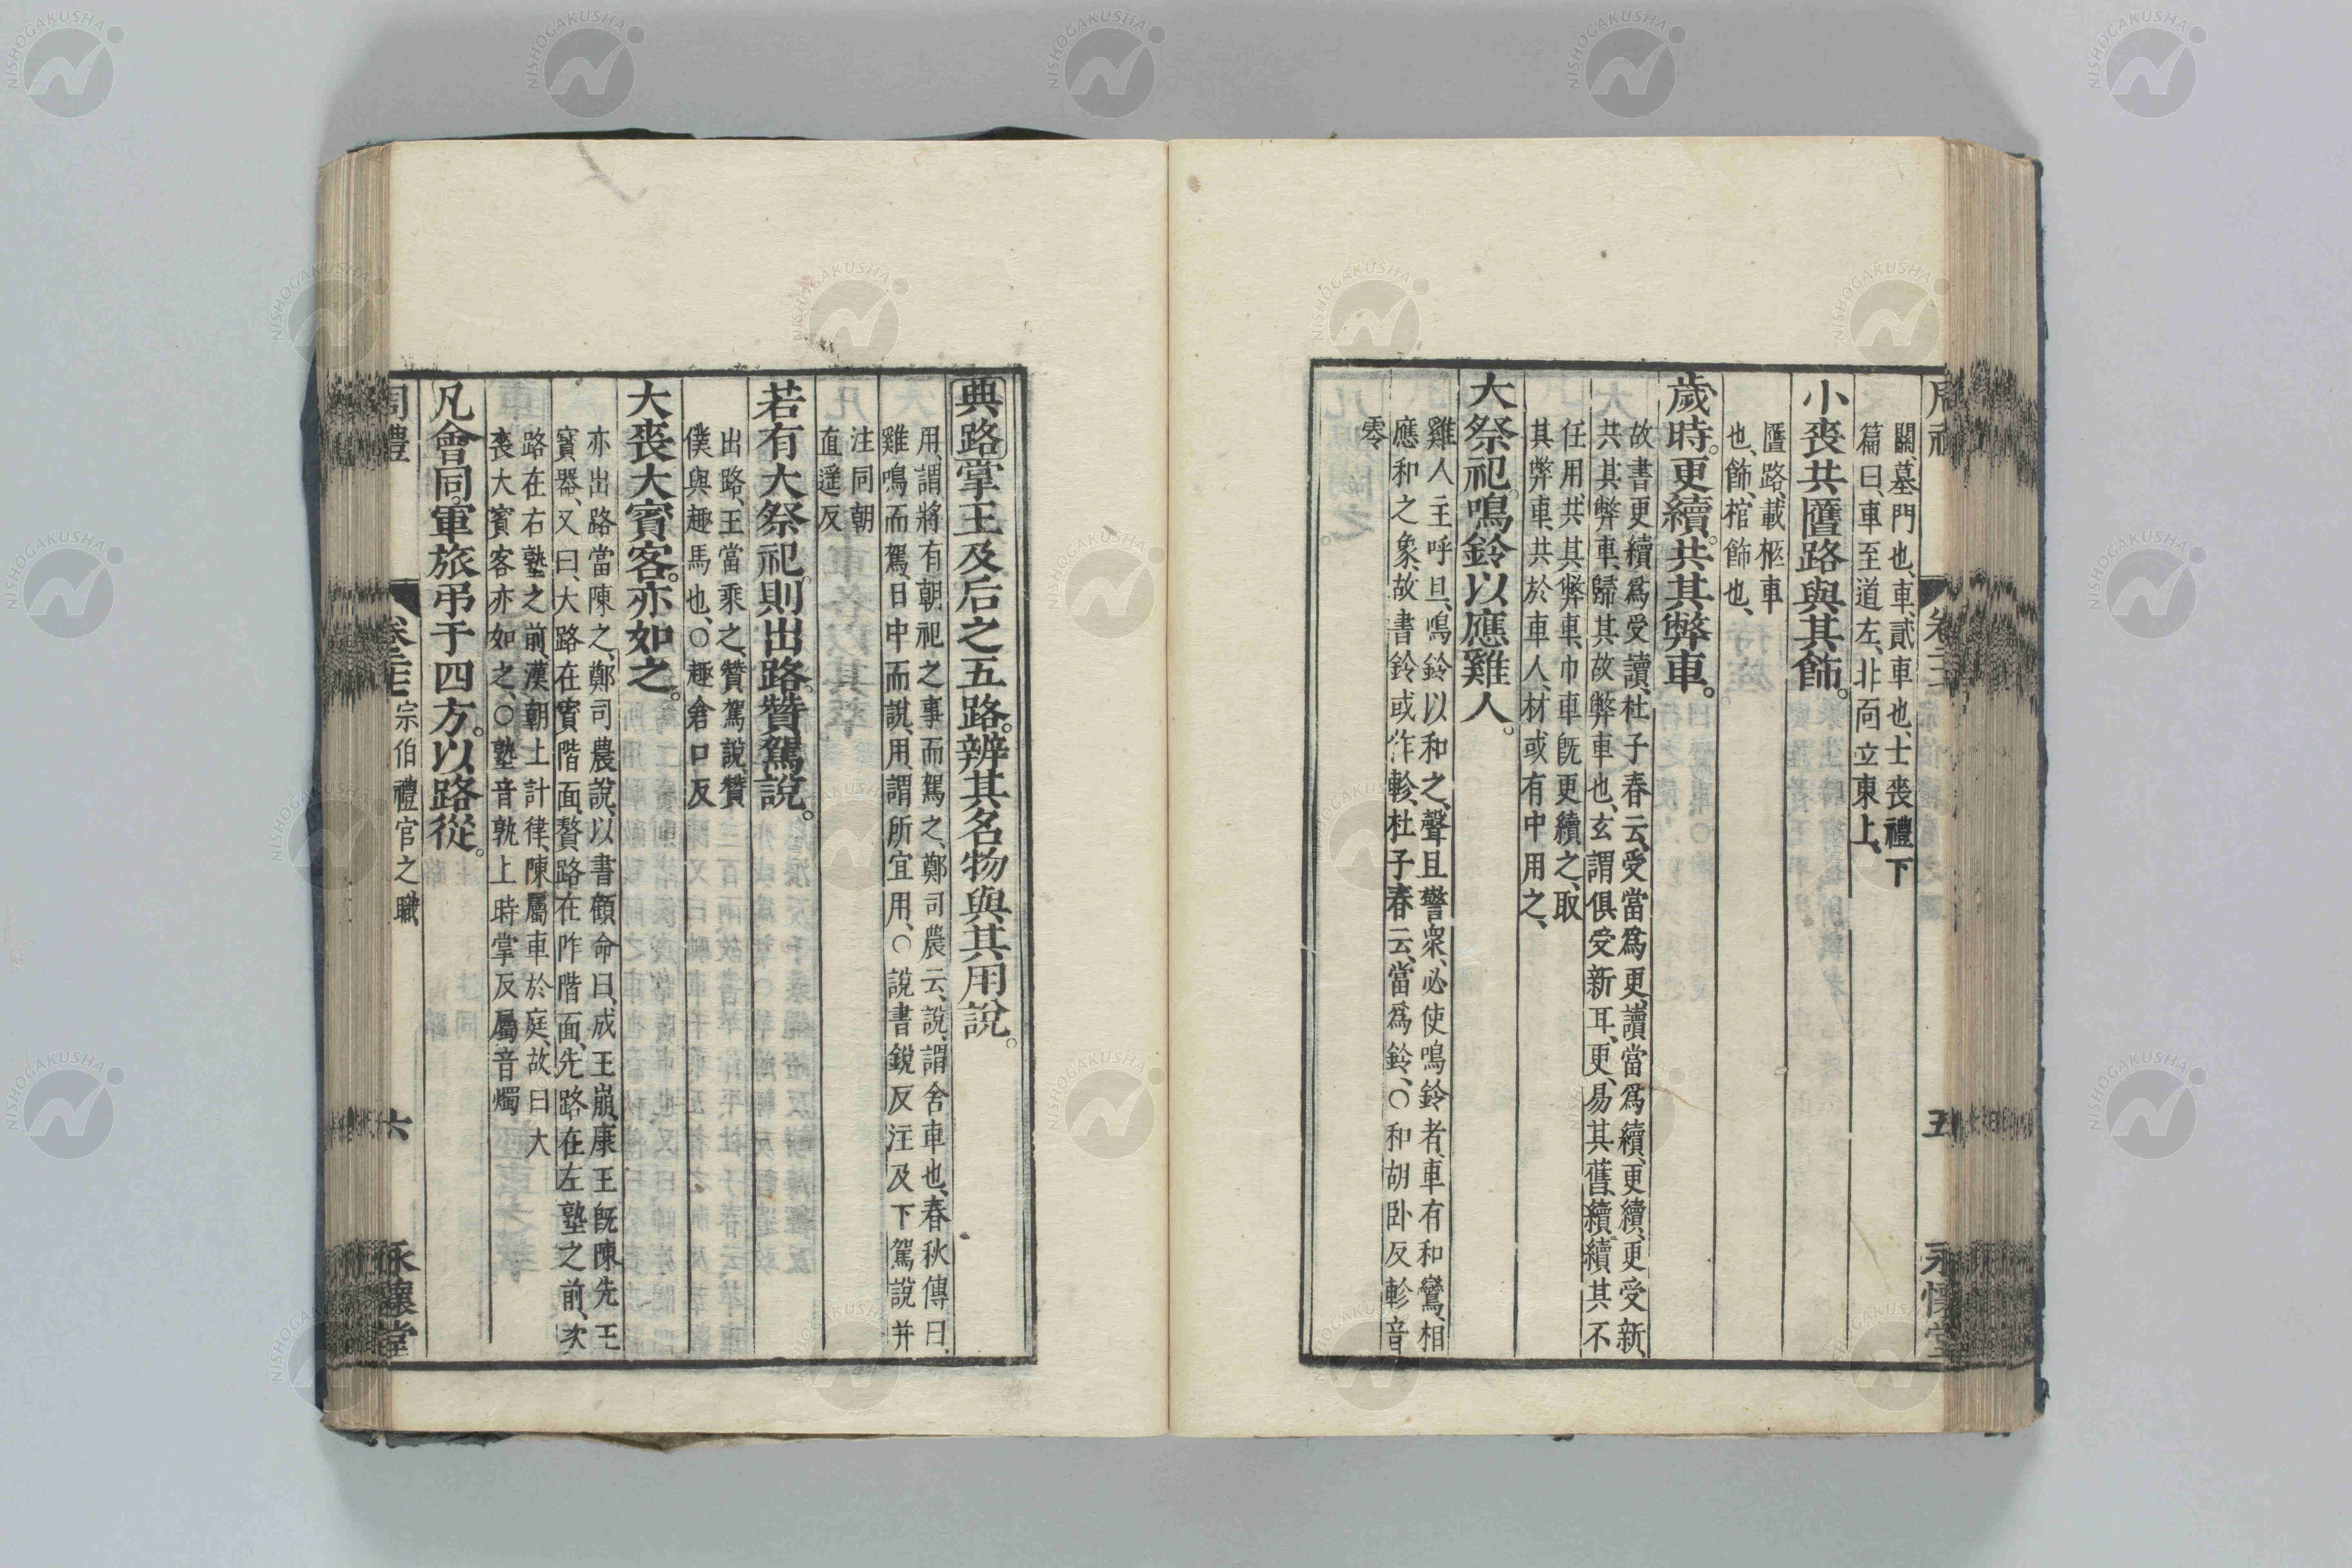 關墓門也、車貳車也、士喪禮下
篇曰、車至道左、北面立東上、
小喪共匶路與其飾。
匶路、載柩車
也、飾、棺飾也、
歲時。更續。共其弊車。
故書更續爲受讀、杜子春云、受當爲更、讀當爲續、更續、更受新、
共其弊車、歸其故弊車也、玄謂俱受新耳、更、易其舊、續、續其不
任用、共其弊車、巾車既更續之、取
其弊車、共於車人、材或有中用之、
大祭祀。鳴鈴以應雞人。
雞人主呼旦、鳴鈴以和之、聲且警衆、必使鳴鈴者、車有和鸞、相
應和之象、故書鈴或作軨、杜子春云、當爲鈴、○和胡卧反軨音
零
五
典路掌王及后之五路。辨其名物與其用說。
用、謂將有朝祀之事而駕之、鄭司農云、說、謂舍車也、春秋傳曰、
雞鳴而駕、日中而說、用、謂所宜用、○說書銳反注及下駕說并
注同朝
直遥反
若有大祭祀。則出路。贊駕說。
出路、王當乘之、贊駕說、贊
僕與趣馬也、○趣倉口反
大喪大賓客。亦如之。
亦出路當陳之、鄭司農說、以書顧命曰、成王崩、康王既陳先王
寶器、又曰、大路在賓階面、贅路在阼階面、先路在左塾之前、次
路在右塾之前、漢朝上計律、陳屬車於庭、故曰大
喪大賓客亦如之、○塾音孰上時掌反屬音燭
凡會同。軍旅。弔于四方。以路從。
周禮 宗伯禮官之職 六 永懷堂
NISHOGAKUSHA